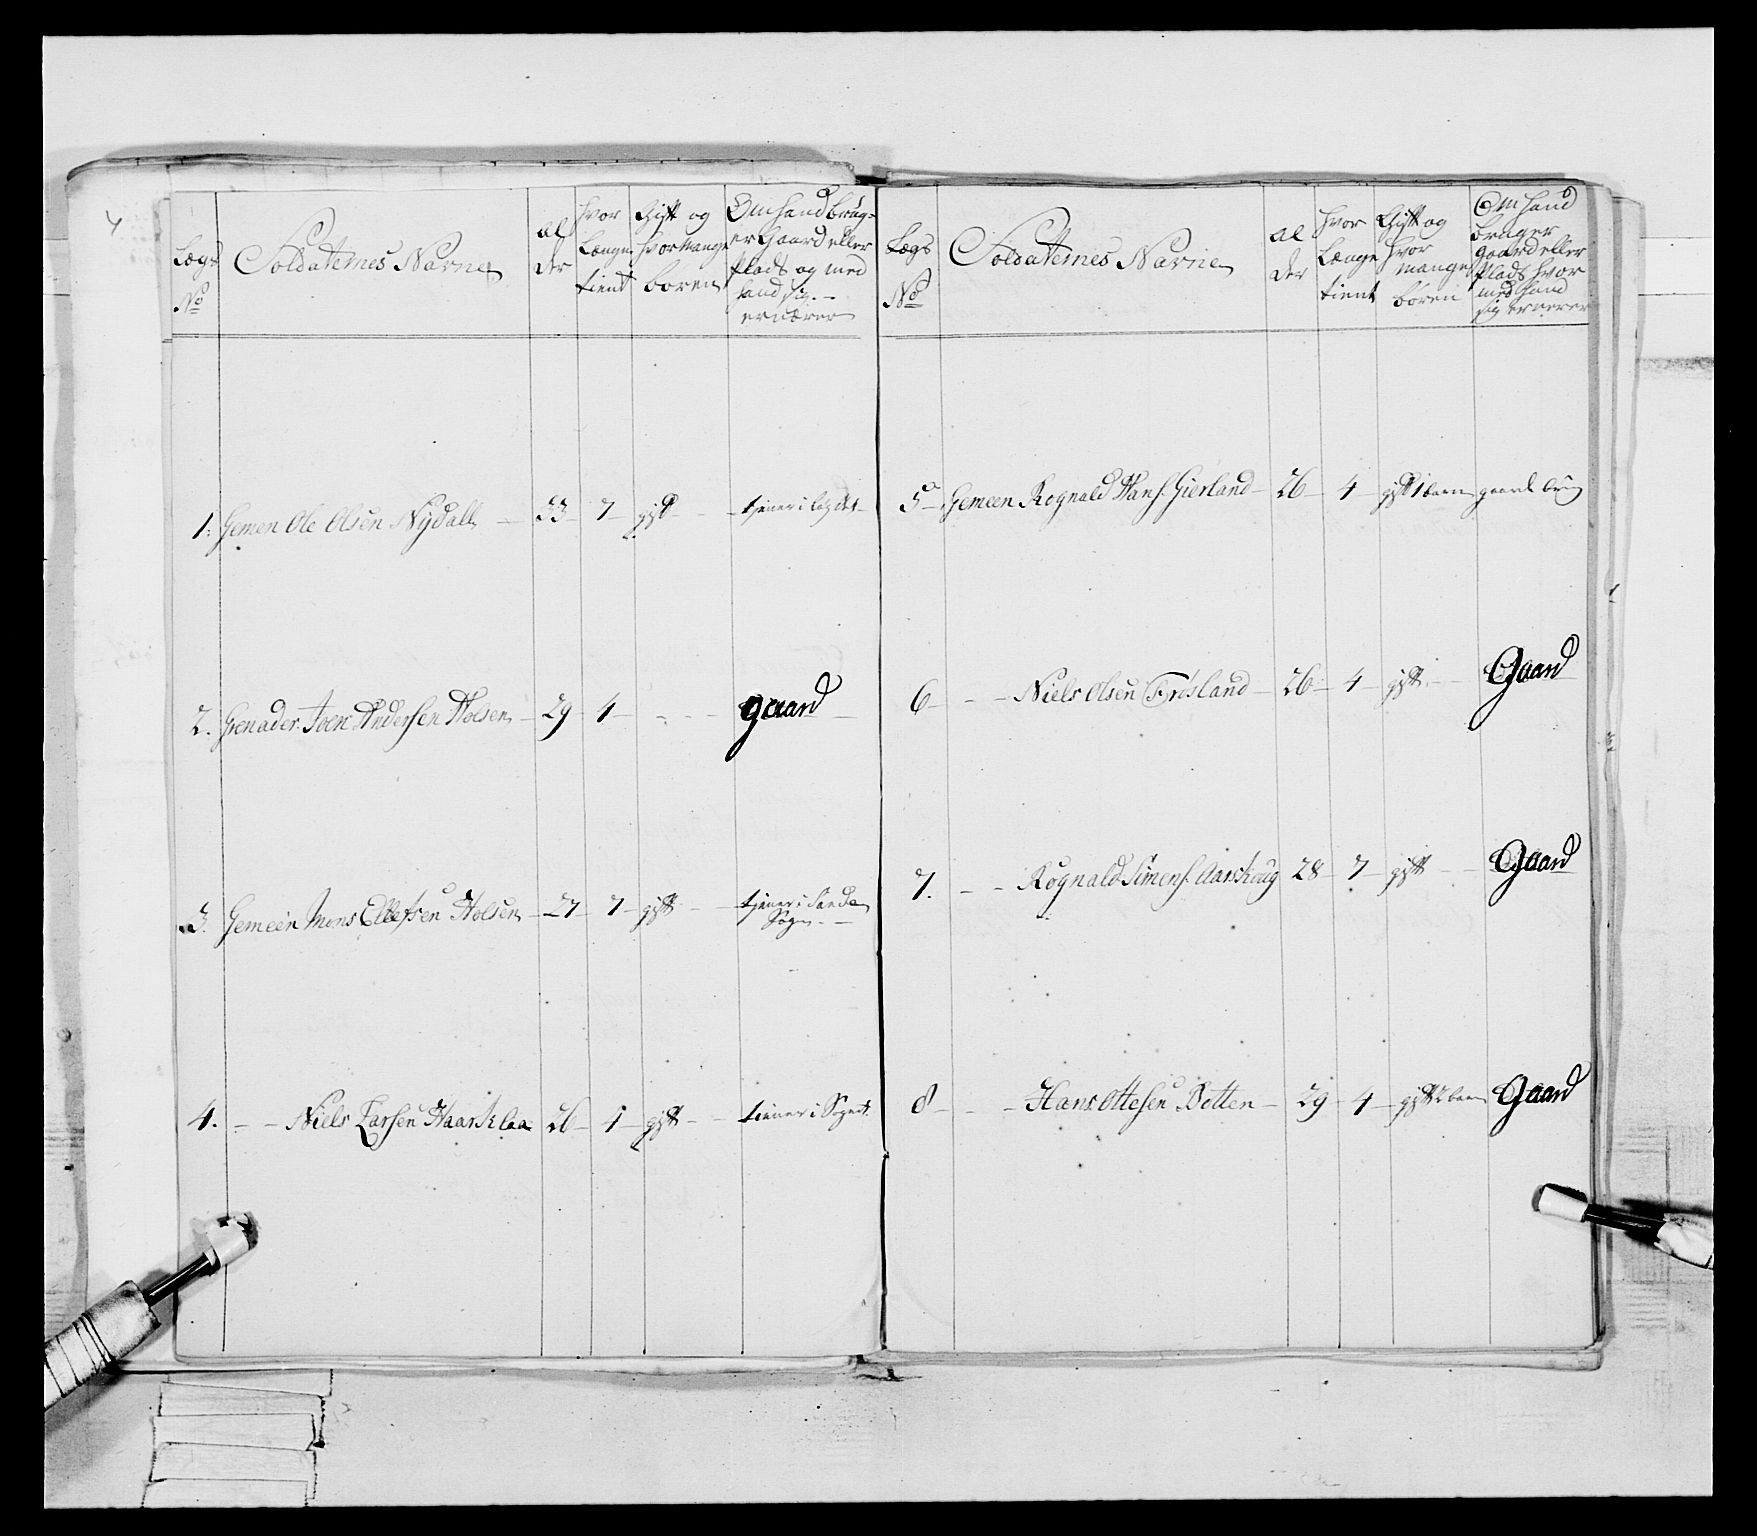 4
Lægs No
Soldatternes Navne
al der
hvor Længe tient
Gift og hvormange boren
Om hand brug- er Gaard eller Plads og med hand sig ernærer
1. Gemen Ole Olsen Nydall 33 7 gift tjener i legdet
2. Grenader Joen Andersen Holsen 29 4 gaard
3. Gemeen Mons Ellefsen Holsen 27 7 gift tjener i Sogn
4. Niels Larsen Haarklaa 26 1 gift tiener i Sognet
Lægs No
Soldatternes Navne
al der
hvor Længe tient
Gift og hvor mange boren
Om hand bruger gaard eller Plads hvor med hand sig ernerer
5 Gemeen Rognald Hans. Gierland 26 4 gift 1 barn gaard brug
6 Niels Olsen Frøsland 26 4 gift Gaard
7. Rognald Simens. Aarskoug 28 7 gift Gaard
8 Hans Ottesen Betten 29 4 gift 2 barn Gaard